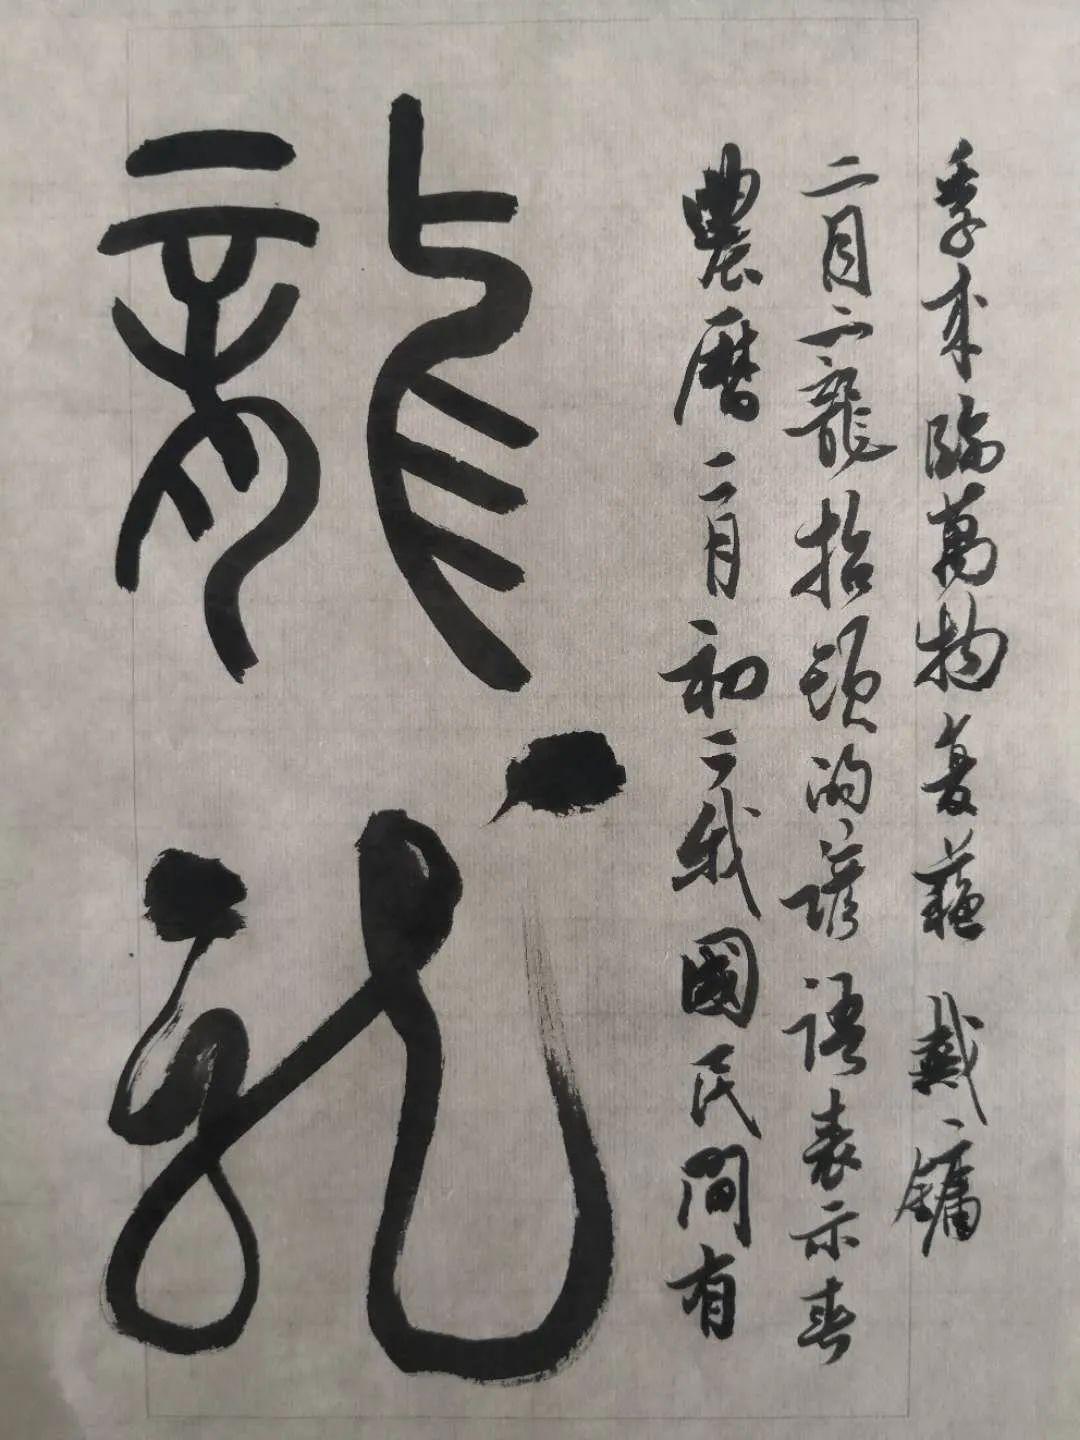 龍
龍
農曆二月初二我國民間有
二月二龍抬頭的諺語表示春
季來臨萬物复蘇 戴鏞